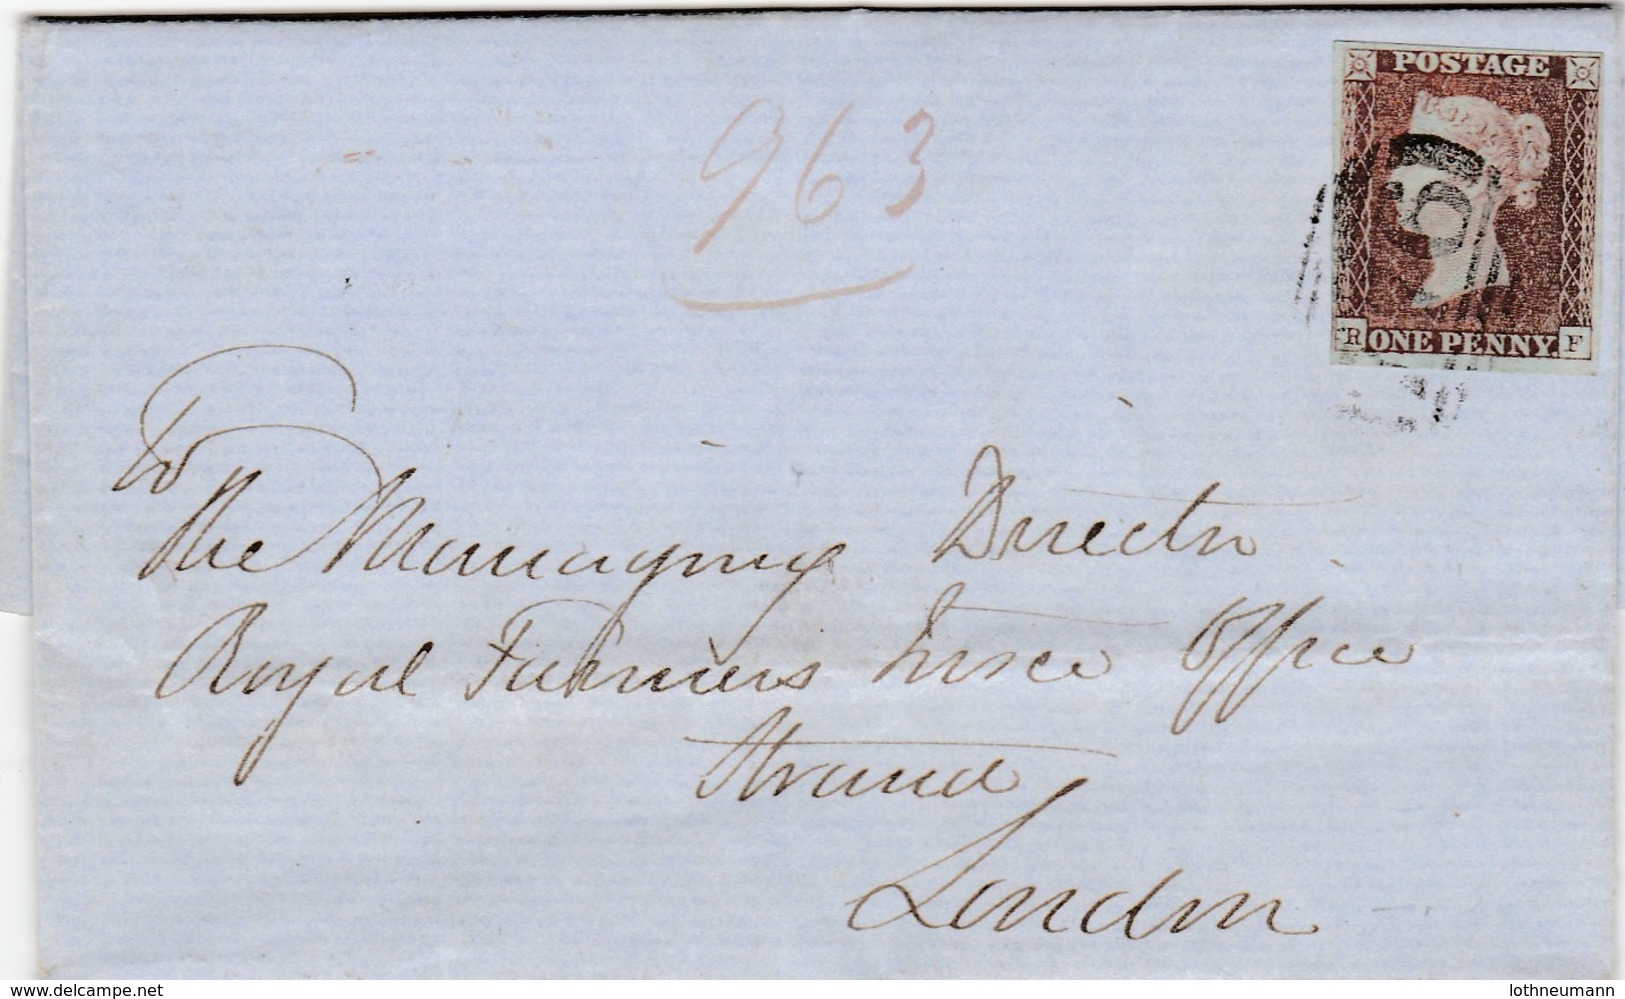 POSTAGE
963
R ONE PENNY. F
To
The Managing Director
Royal Farmers Insce Office
Strand
London
www.delcampe.net
lothneumann